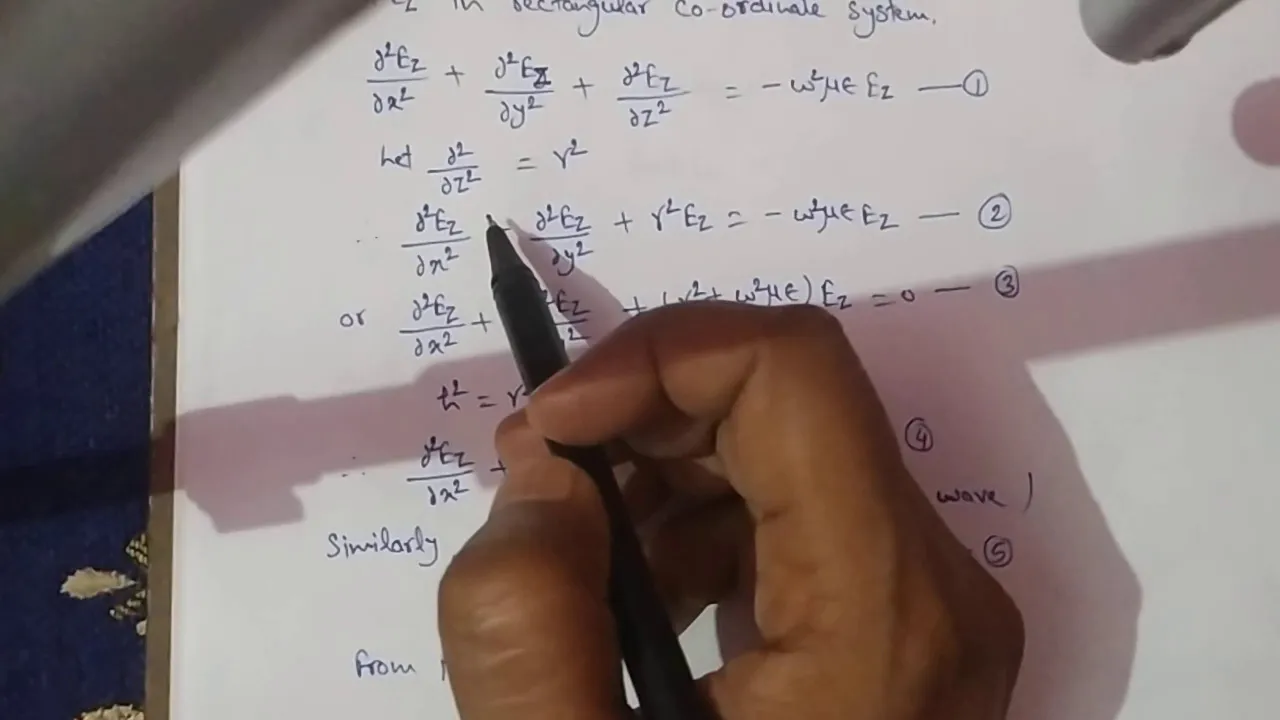 in rectangular co-ordinate system.
∂²Ez/∂x² + ∂²Ez/∂y² + ∂²Ez/∂z² = - ω²μϵ Ez — ①
Let ∂²/∂z² = γ²
∴ ∂²Ez/∂x² + ∂²Ez/∂y² + γ²Ez = - ω²μϵ Ez — ②
or ∂²Ez/∂x² + (γ² + ω²μϵ) Ez = 0 — ③
h² = γ
∴ ∂²Ez/∂x² + ④
wave)
Similarly — ⑤
From